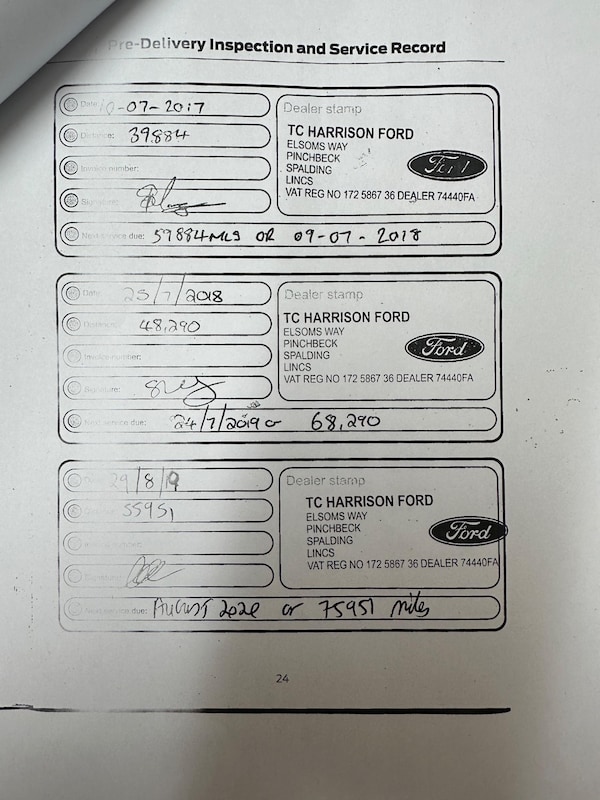 Pre-Delivery Inspection and Service Record
Date: 10-07-2017
Distance: 39884
Invoice number:
Signature:
Next service due: 59884 MLS OR 09-07-2018
Dealer stamp
TC HARRISON FORD
ELSOMS WAY
PINCHBECK
SPALDING
LINCS
VAT REG NO 172 5867 36 DEALER 74440FA
Ford
Date: 25/7/2018
Distance: 48,290
Invoice number:
Signature:
Next service due: 24/7/2019 or 68,290
Dealer stamp
TC HARRISON FORD
ELSOMS WAY
PINCHBECK
SPALDING
LINCS
VAT REG NO 172 5867 36 DEALER 74440FA
Ford
29/8/19
55951
Next service due: AUGUST 2020 or 75951 miles
Dealer stamp
TC HARRISON FORD
ELSOMS WAY
PINCHBECK
SPALDING
LINCS
VAT REG NO 172 5867 36 DEALER 74440FA
Ford
24